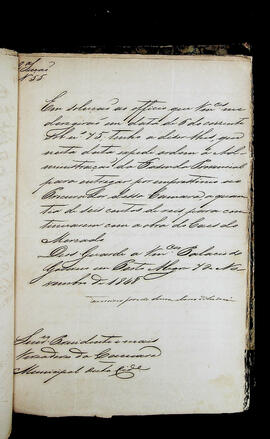 2ª Secção
N. 55
Em solução ao officio que Vmces me
dirigirão em data de 6 do corrente
sob nº 45 tenho a dizer-lhes que
nesta data expede ordem a Ad-
ministração da Fazenda Provincial
para entregar por emprestimo ao
Procurador dessa Camara, a quan-
tia de seis contos de reis para con-
tinuarem com a obra do Caes do
Mercado.
Deos Guarde a Vmces Palacio do
Governo em Porto Alegre de No-
vembro de 1848
Senres Presidente e mais
Vereadores da Camara
Municipal desta Cide